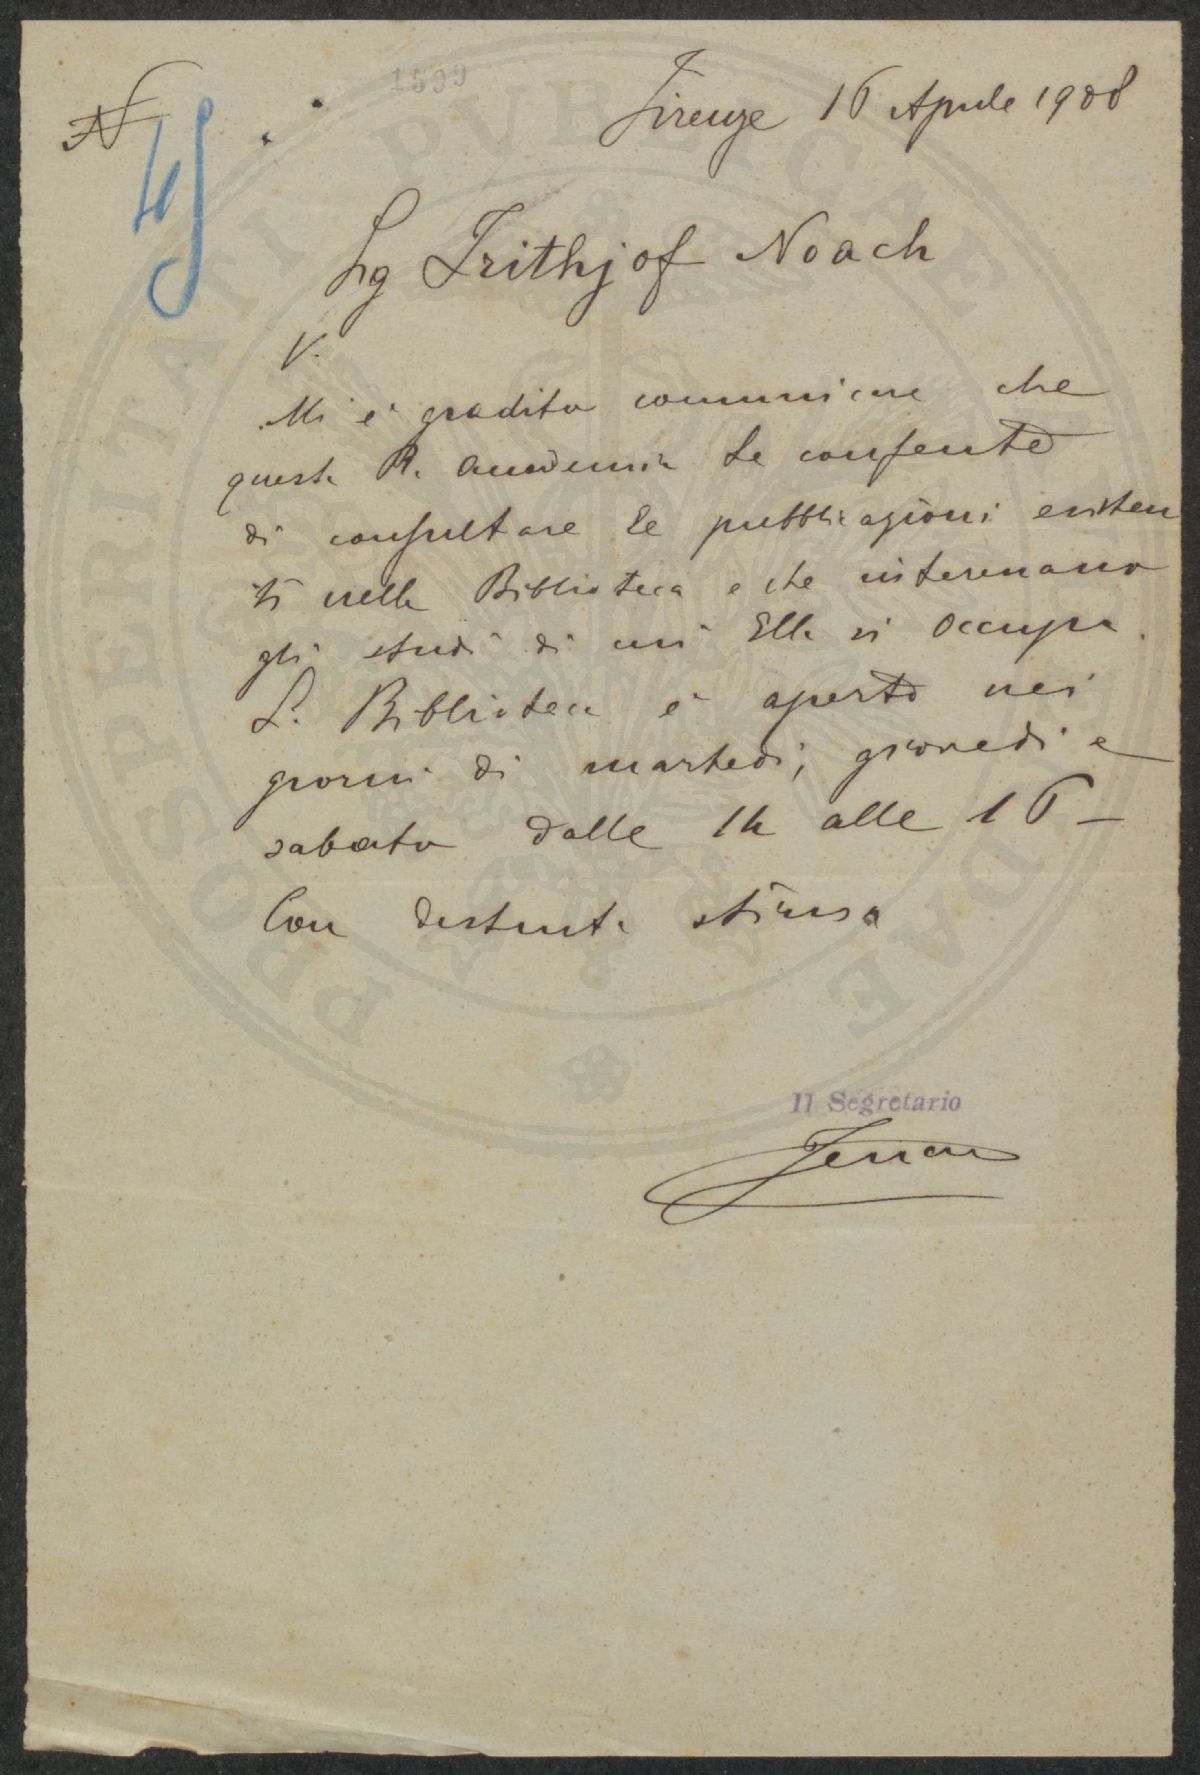 1599
Firenze 16 Aprile 1908
N
45
Sg Frithjof Noach
V.
Mi è gradito comunicare che
questa R. Accademia Le consente
di consultare le pubblicazioni esisten
ti nella Biblioteca e che interessano
gli studi di cui Ella si occupa.
La Biblioteca è aperta nei
giorni di martedì, giovedì e
sabato dalle 14 alle 16 –
Con distinta stima
Il Segretario